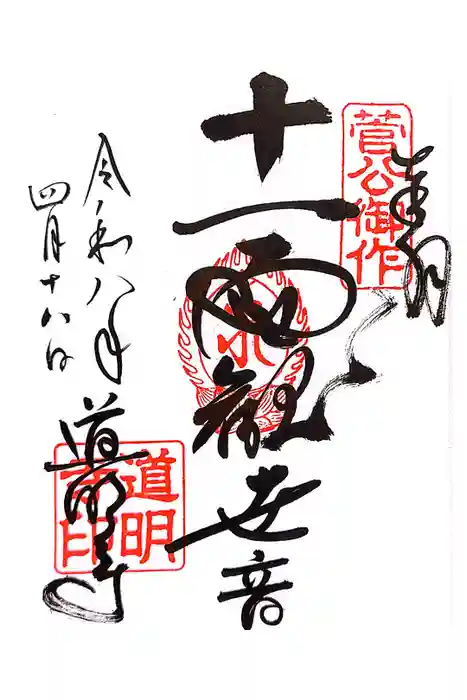 奉拝
菅公御作
十一面観世音
令和八年
四月十八日
道明寺
道明寺印